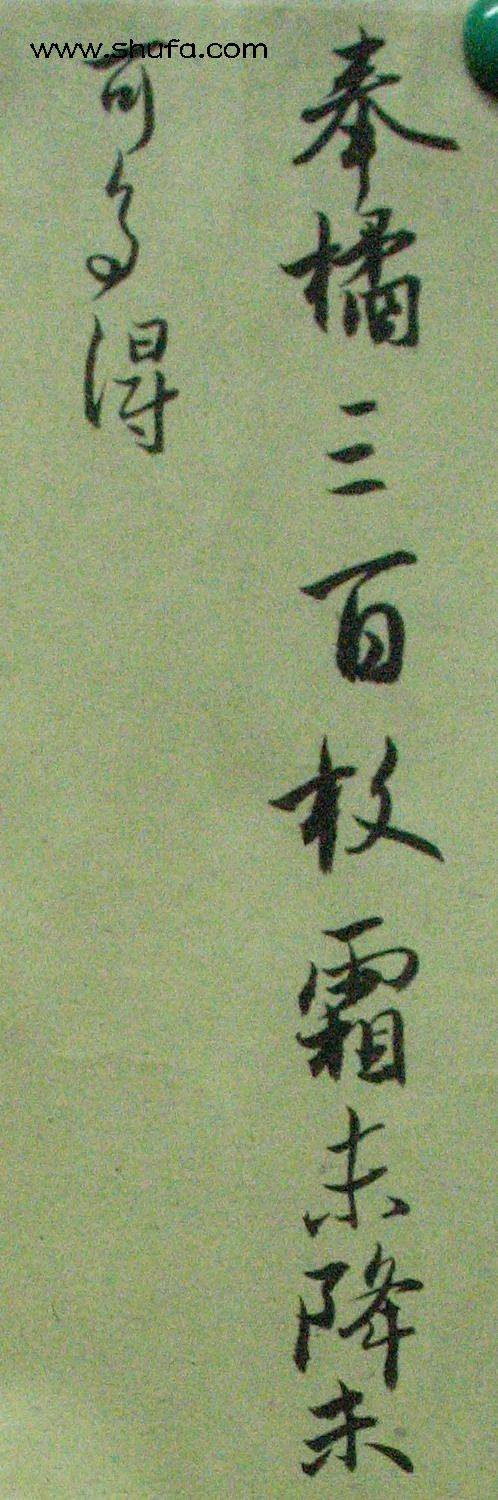 www.shufa.com
奉橘三百枚霜未降未
可多得